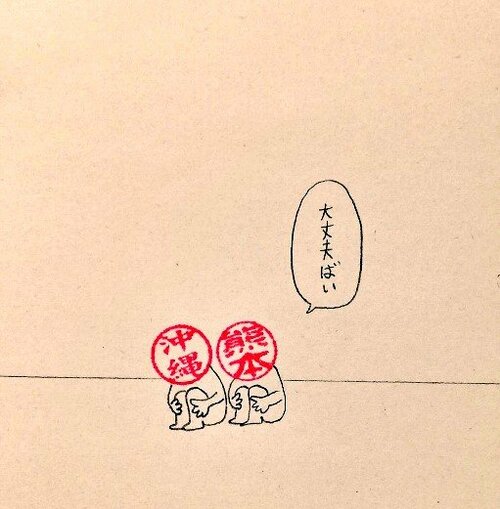 大丈夫ばい
沖縄
熊本